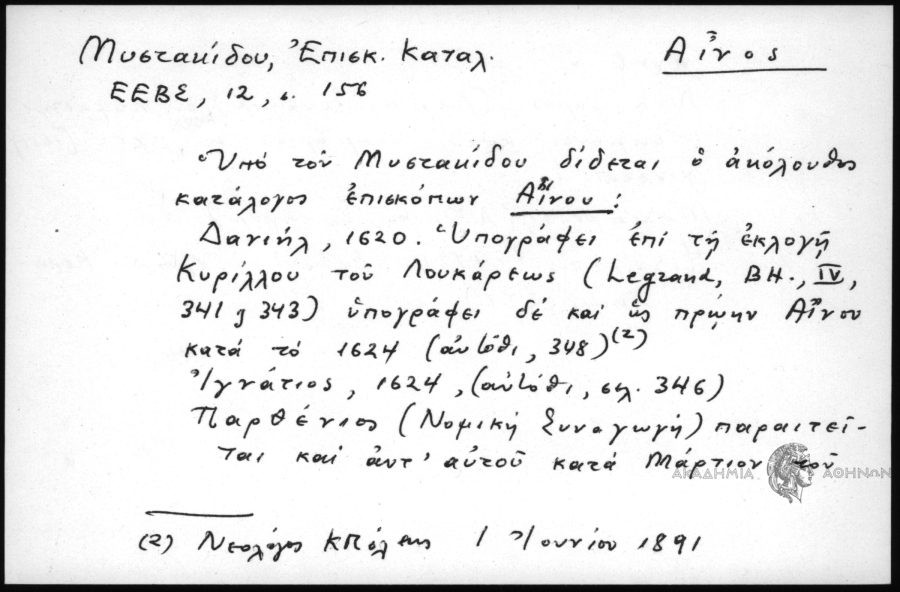 Μυστακίδου, Ἐπισκ. Καταλ. Αἶνος
ΕΕΒΣ, 12, σ. 156
Ὑπό τοῦ Μυστακίδου δίδεται ὁ ἀκόλουθος
κατάλογος ἐπισκόπων Αἴνου:
Δανιήλ, 1620. Ὑπογράφει ἐπί τῇ ἐκλογῇ
Κυρίλλου τοῦ Λουκάρεως (Legrand, BH., IV,
341, 343) ὑπογράφει δέ καί ὡς πρώην Αἴνου
κατά τό 1624 (αὐτόθι, 348)(2)
Ἰγνάτιος, 1624, (αὐτόθι, σελ. 346)
Παρθένιος (Νομική Συναγωγή) παραιτεῖ-
ται καί ἀντ' αὐτοῦ κατά Μάρτιον τοῦ
ΑΚΑΔΗΜΙΑ ΑΘΗΝΩΝ
(2) Νεολόγος ΚΠόλεως 1 Ἰουνίου 1891